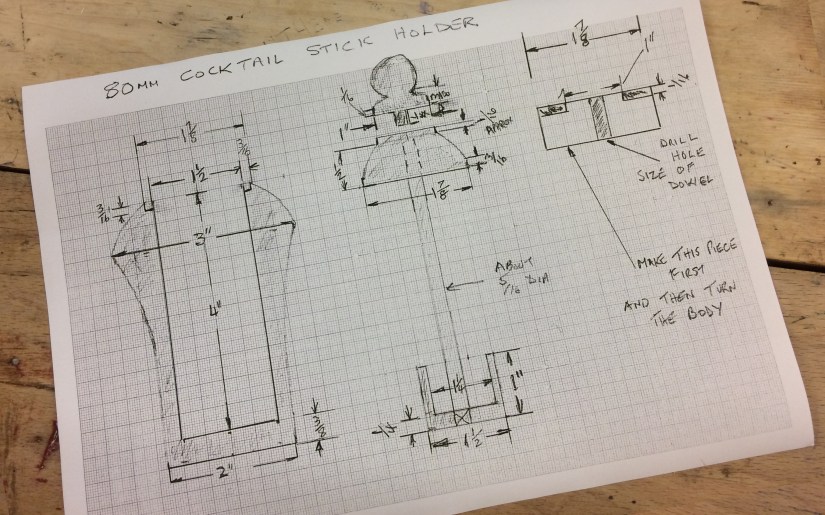 80MM COCKTAIL STICK HOLDER
1 7/8
3/8
1 1/2
3/16
3"
4"
3/4
2"
1"
1/2
3/16
APPROX
1 7/8
ABOUT
5/16 DIA
1 1/4
1"
1/4
1 1/2
1 7/8
1"
DRILL
HOLE
SIZE OF
DOWEL
MAKE THIS PIECE
FIRST
AND THEN TURN
THE BODY